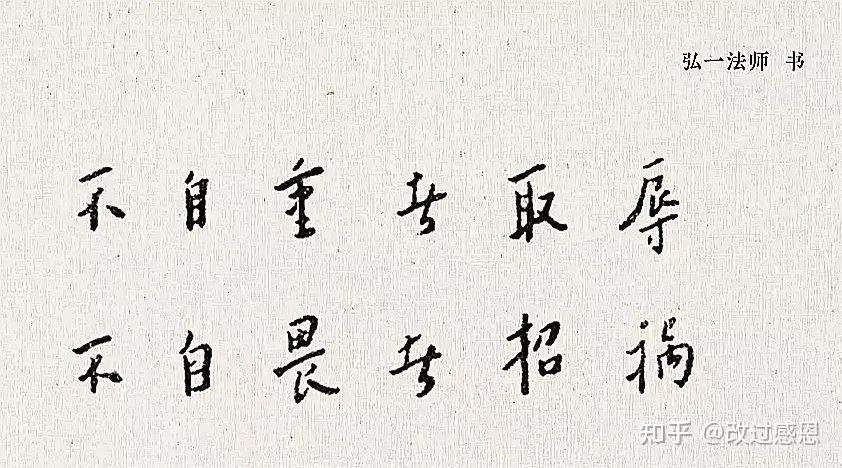 弘一法师 书
不自重者取辱
不自畏者招祸
知乎 @改过感恩